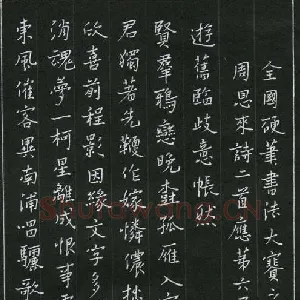 全國硬筆書法大賽
周恩來詩二首應第六
遊舊臨歧意悵然
賢羣鴉戀晚樹孤雁入
君獨著先鞭作嫁憐儂
欣喜前程影因緣文字多
消魂夢一柯星離成恨事
東風催客黯南浦唱驪歌